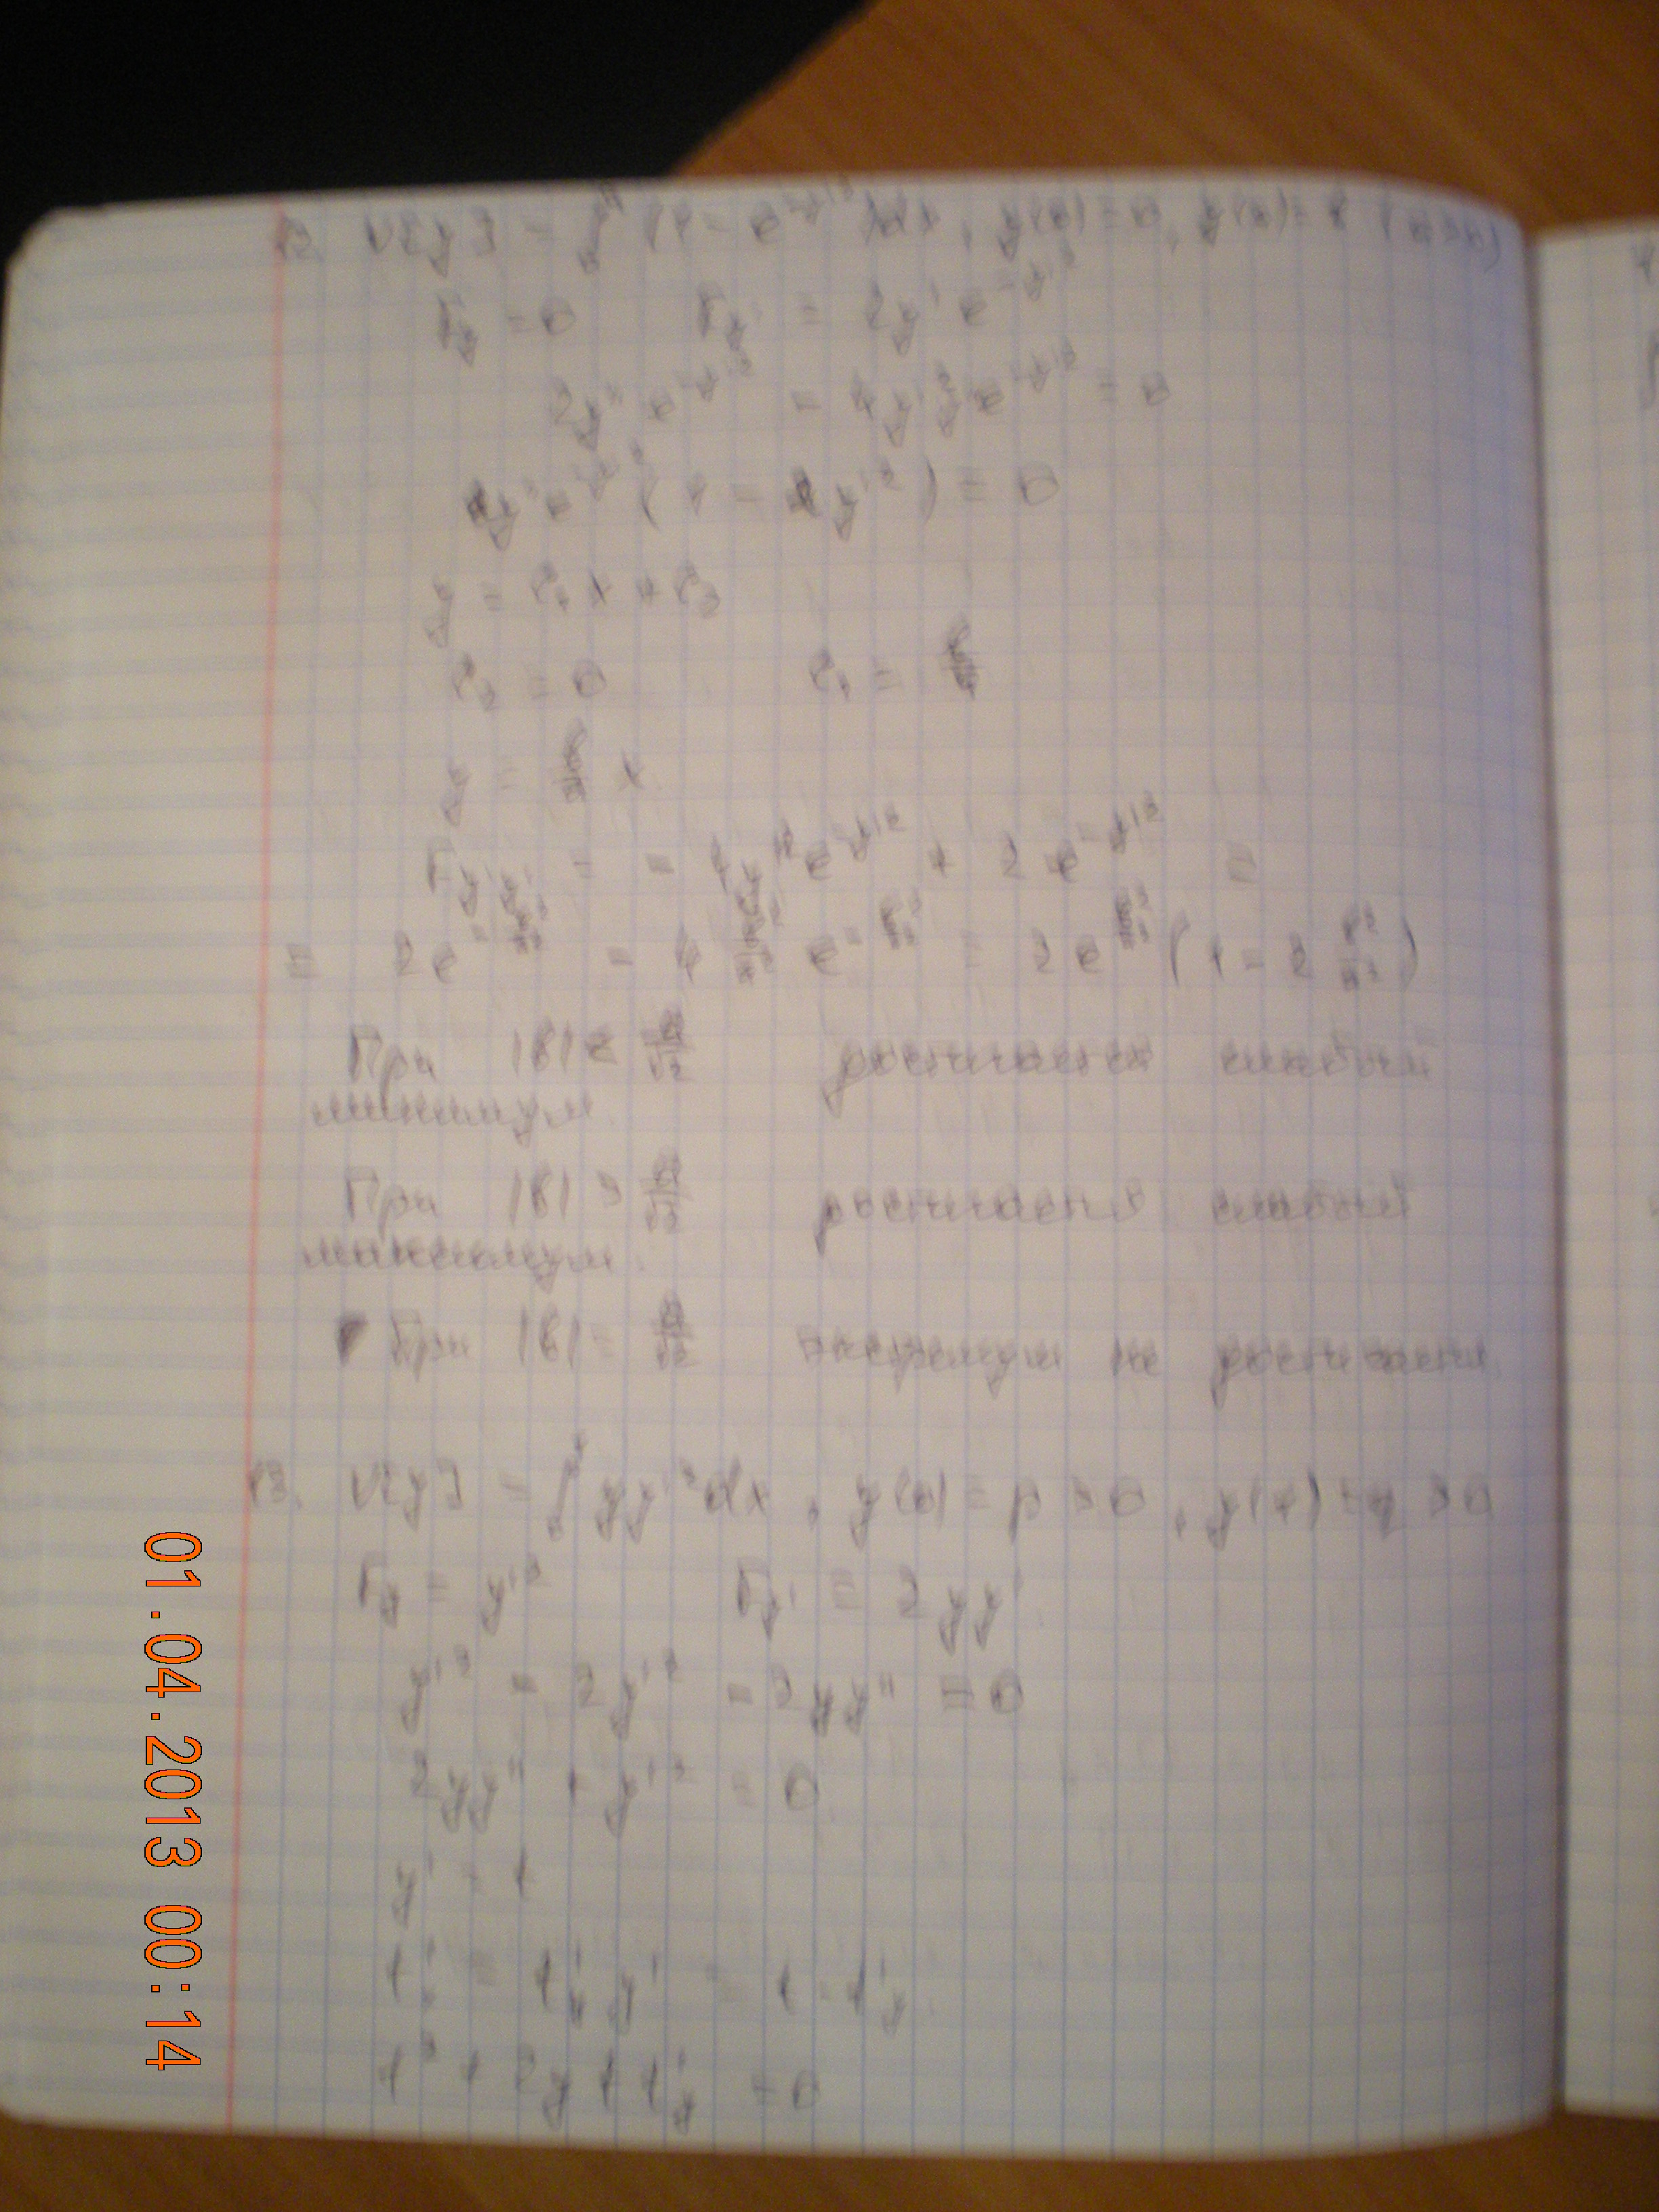 12. V[y] = ∫₀ᵃ (1 - e^(-y'²)) dx, y(0) = 0, y(a) = b (a>0)
F_y = 0 F_y' = 2y' e^(-y'²)
2y'' e^(-y'²) - 4y'² y'' e^(-y'²) = 0
2y'' e^(-y'²) (1 - 2y'²) = 0
y = C₁x + C₂
C₂ = 0 C₁ = b/a
y = b/a x
F_y'y' = - 4y'² e^(-y'²) + 2e^(-y'²) =
= 2e^(-b²/a²) - 4 b²/a² e^(-b²/a²) = 2e^(b²/a²) (1 - 2 b²/a²)
При |b| < a/√2 достигается слабый
минимум.
При |b| > a/√2 достигается слабый
максимум.
При |b| = a/√2 экстремум не достигается
13. V[y] = ∫₀¹ yy'² dx, y(0) = p > 0, y(1) = q > 0
F_y = y'² F_y' = 2yy'
y'² - 2y'² - 2yy'' = 0
2yy'' + y'² = 0
y' = t
t'ₓ = t'_y y' = t · t'_y
t² + 2y t t'_y = 0
01.04.2013 00:14